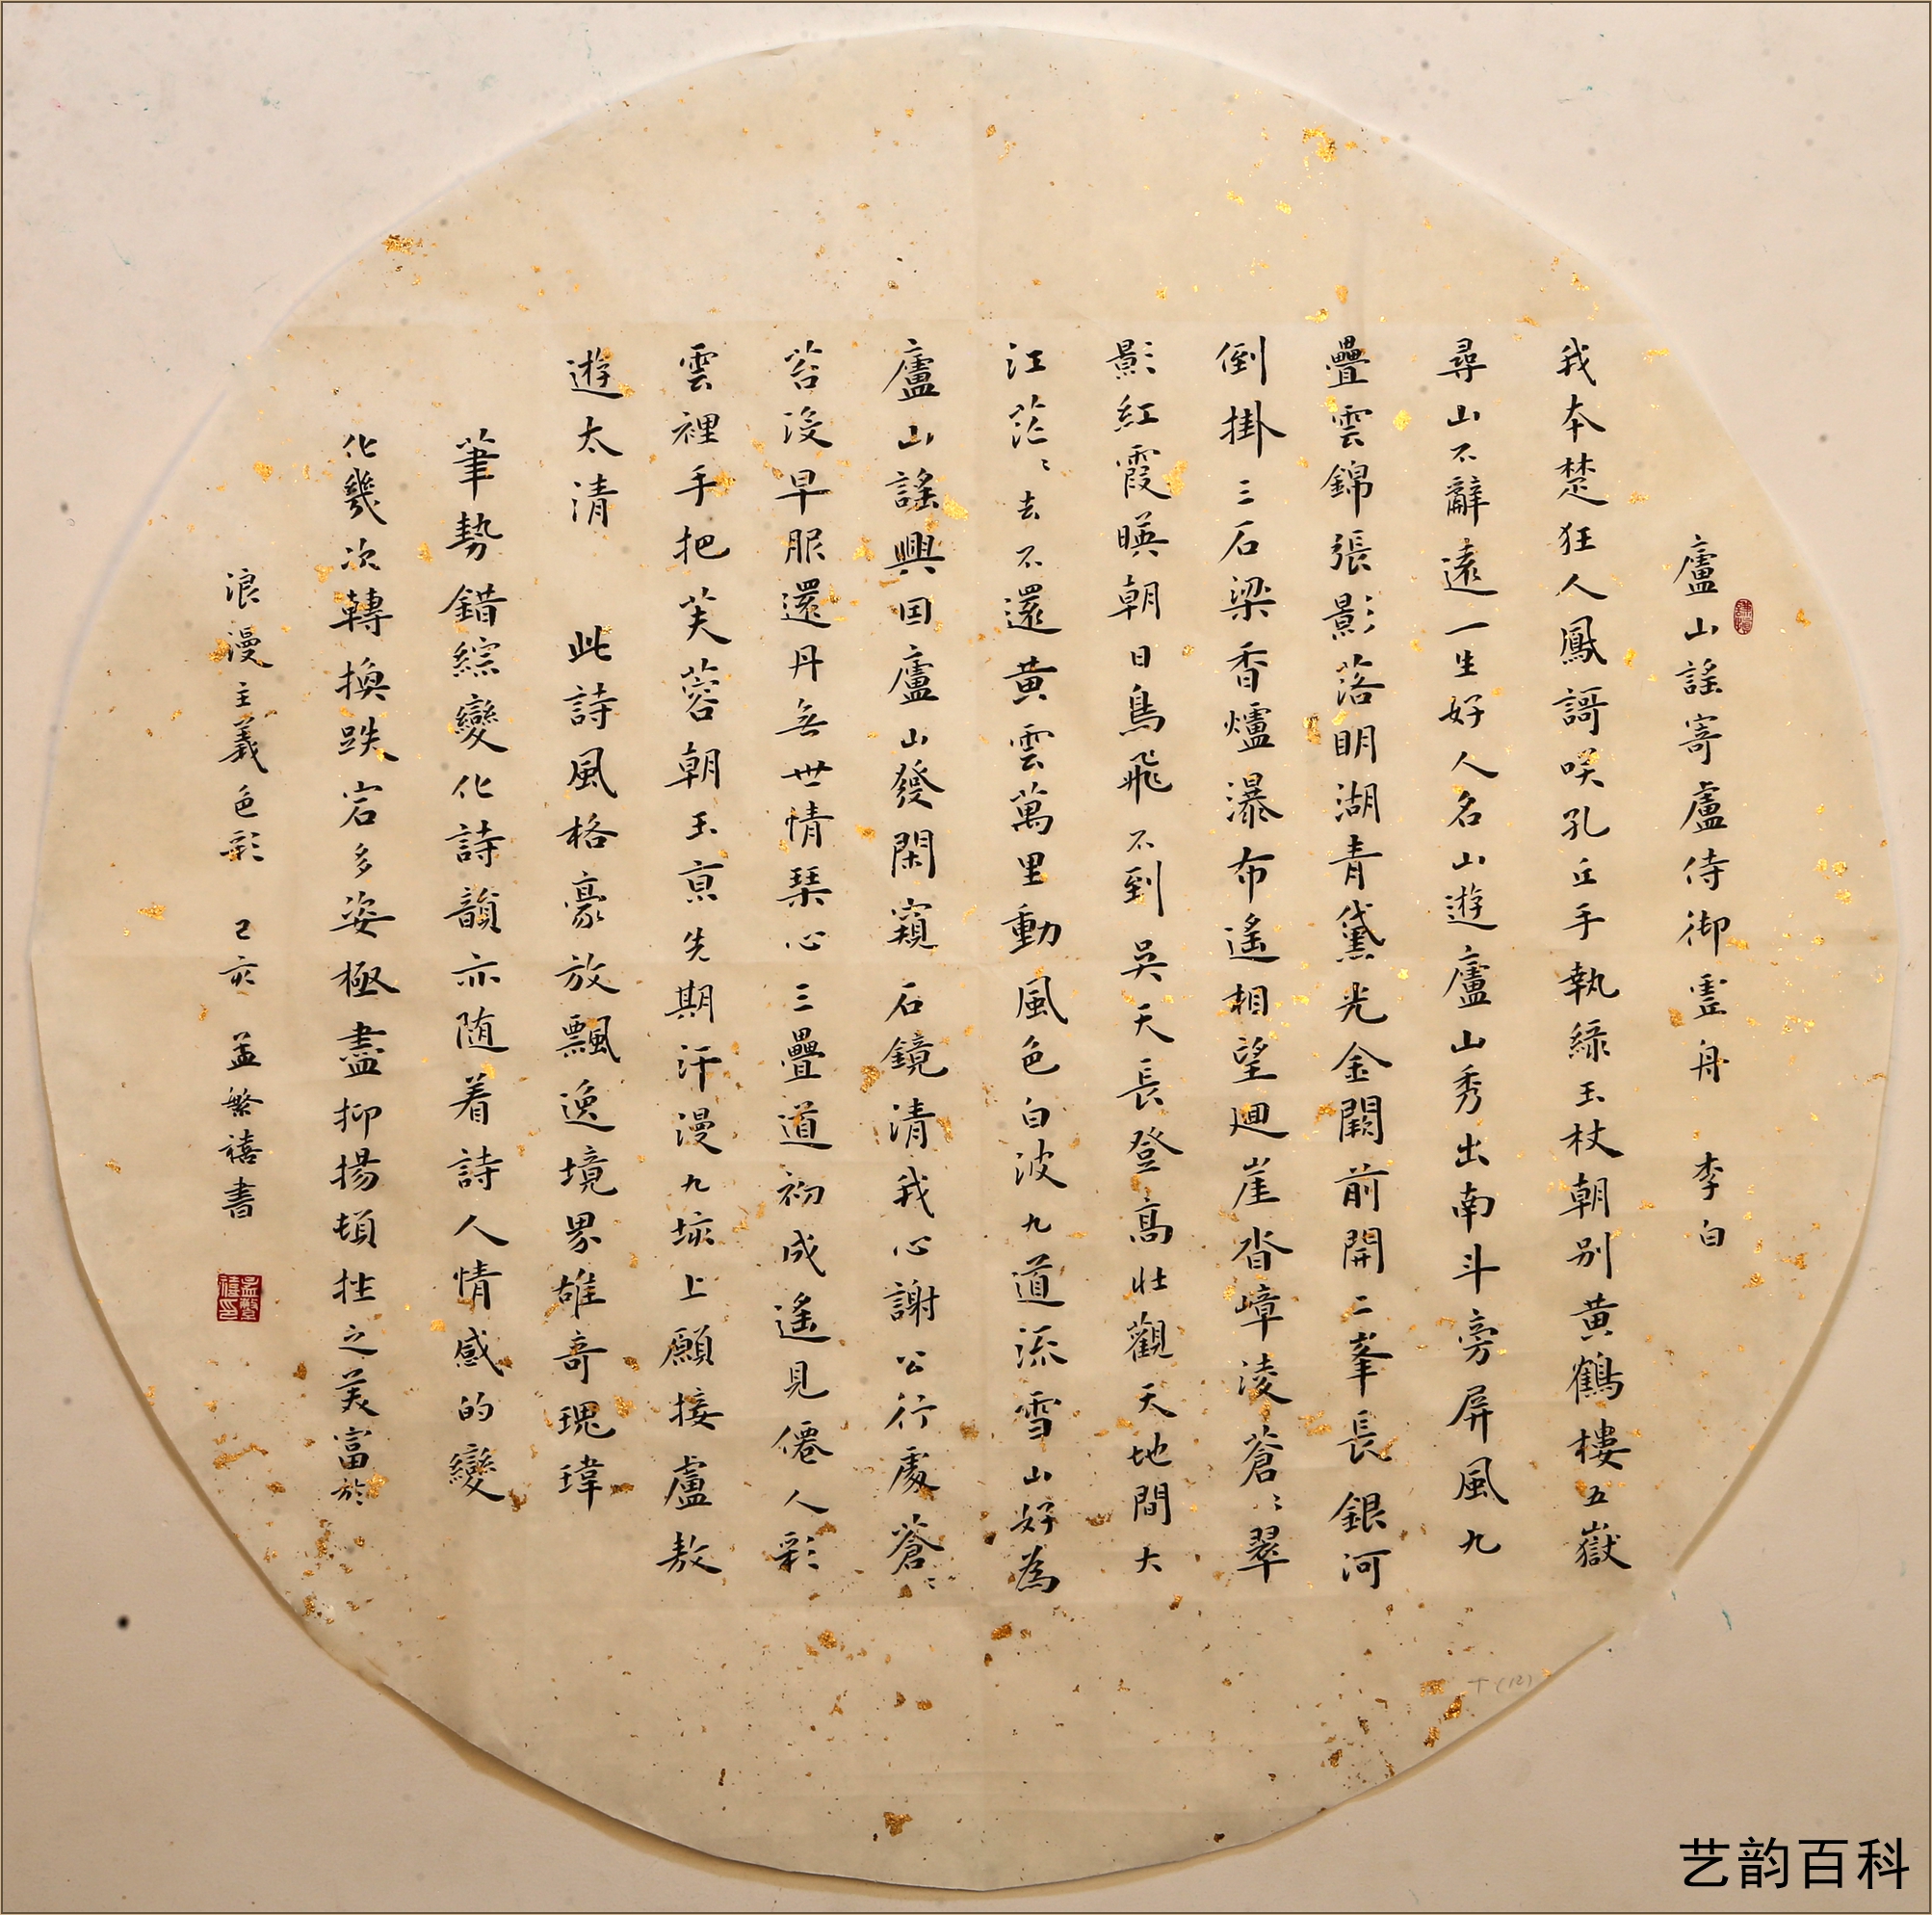 廬山謠寄盧侍御虛舟 李白
我本楚狂人鳳謌咲孔丘手執綠玉杖朝别黄鶴樓五嶽
尋山不辭遠一生好人名山遊廬山秀出南斗旁屏風九
疊雲錦張影落明湖青黛光金闕前開二峯長銀河
倒掛三石梁香爐瀑布遙相望迴崖沓嶂淩蒼〻翠
影紅霞暎朝日鳥飛不到吳天長登高壯觀天地間大
江茫〻去不還黄雲萬里動風色白波九道流雪山好為
廬山謠興因廬山發閑窺石鏡清我心謝公行處蒼〻
苔没早服還丹無世情琴心三疊道初成遙見僊人彩
雲裡手把芙蓉朝玉京先期汗漫九垓上願接盧敖
遊太清 此詩風格豪放飄逸境界雄奇瑰瑋
筆勢錯綜變化詩韻亦随着詩人情感的變
化幾次轉換跌宕多姿極盡抑揚頓挫之美富於
浪漫主義色彩 己亥 孟繁禧書
艺韵百科